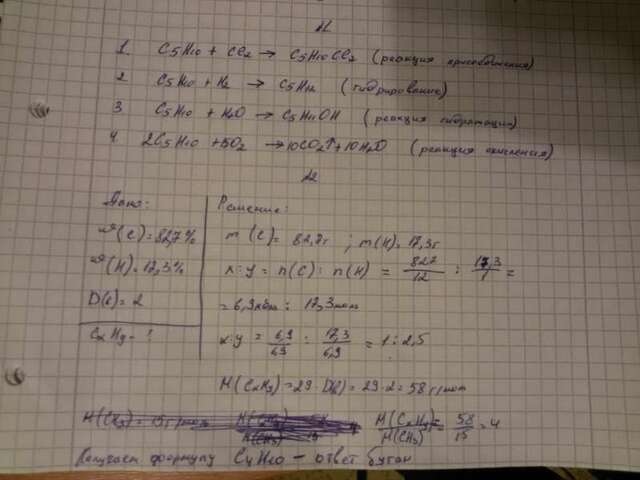 №1
1. C5H10 + Cl2 → C5H10Cl2 (реакция присоединения)
2. C5H10 + H2 → C5H12 (гидрирование)
3. C5H10 + H2O → C5H11OH (реакция гидратации)
4. 2C5H10 + 15O2 → 10CO2↑ + 10H2O (реакция окисления)
№2
Дано:
ω(C) = 82,7%
ω(H) = 17,3%
D(в) = 2
CxHy - ?
Решение:
m (C) = 82,7г ; m(H) = 17,3г
x : y = n(C) : n(H) = 82,7/12 : 17,3/1 =
= 6,9моль : 17,3моль
x:y = 6,9/6,9 : 17,3/6,9 = 1 : 2,5
M(CxHy) = 29 · D(в) = 29 · 2 = 58 г/моль
M(CxHy)/M(CH3) = 58/15 = 4
Получаем формулу C4H10 — ответ бутан